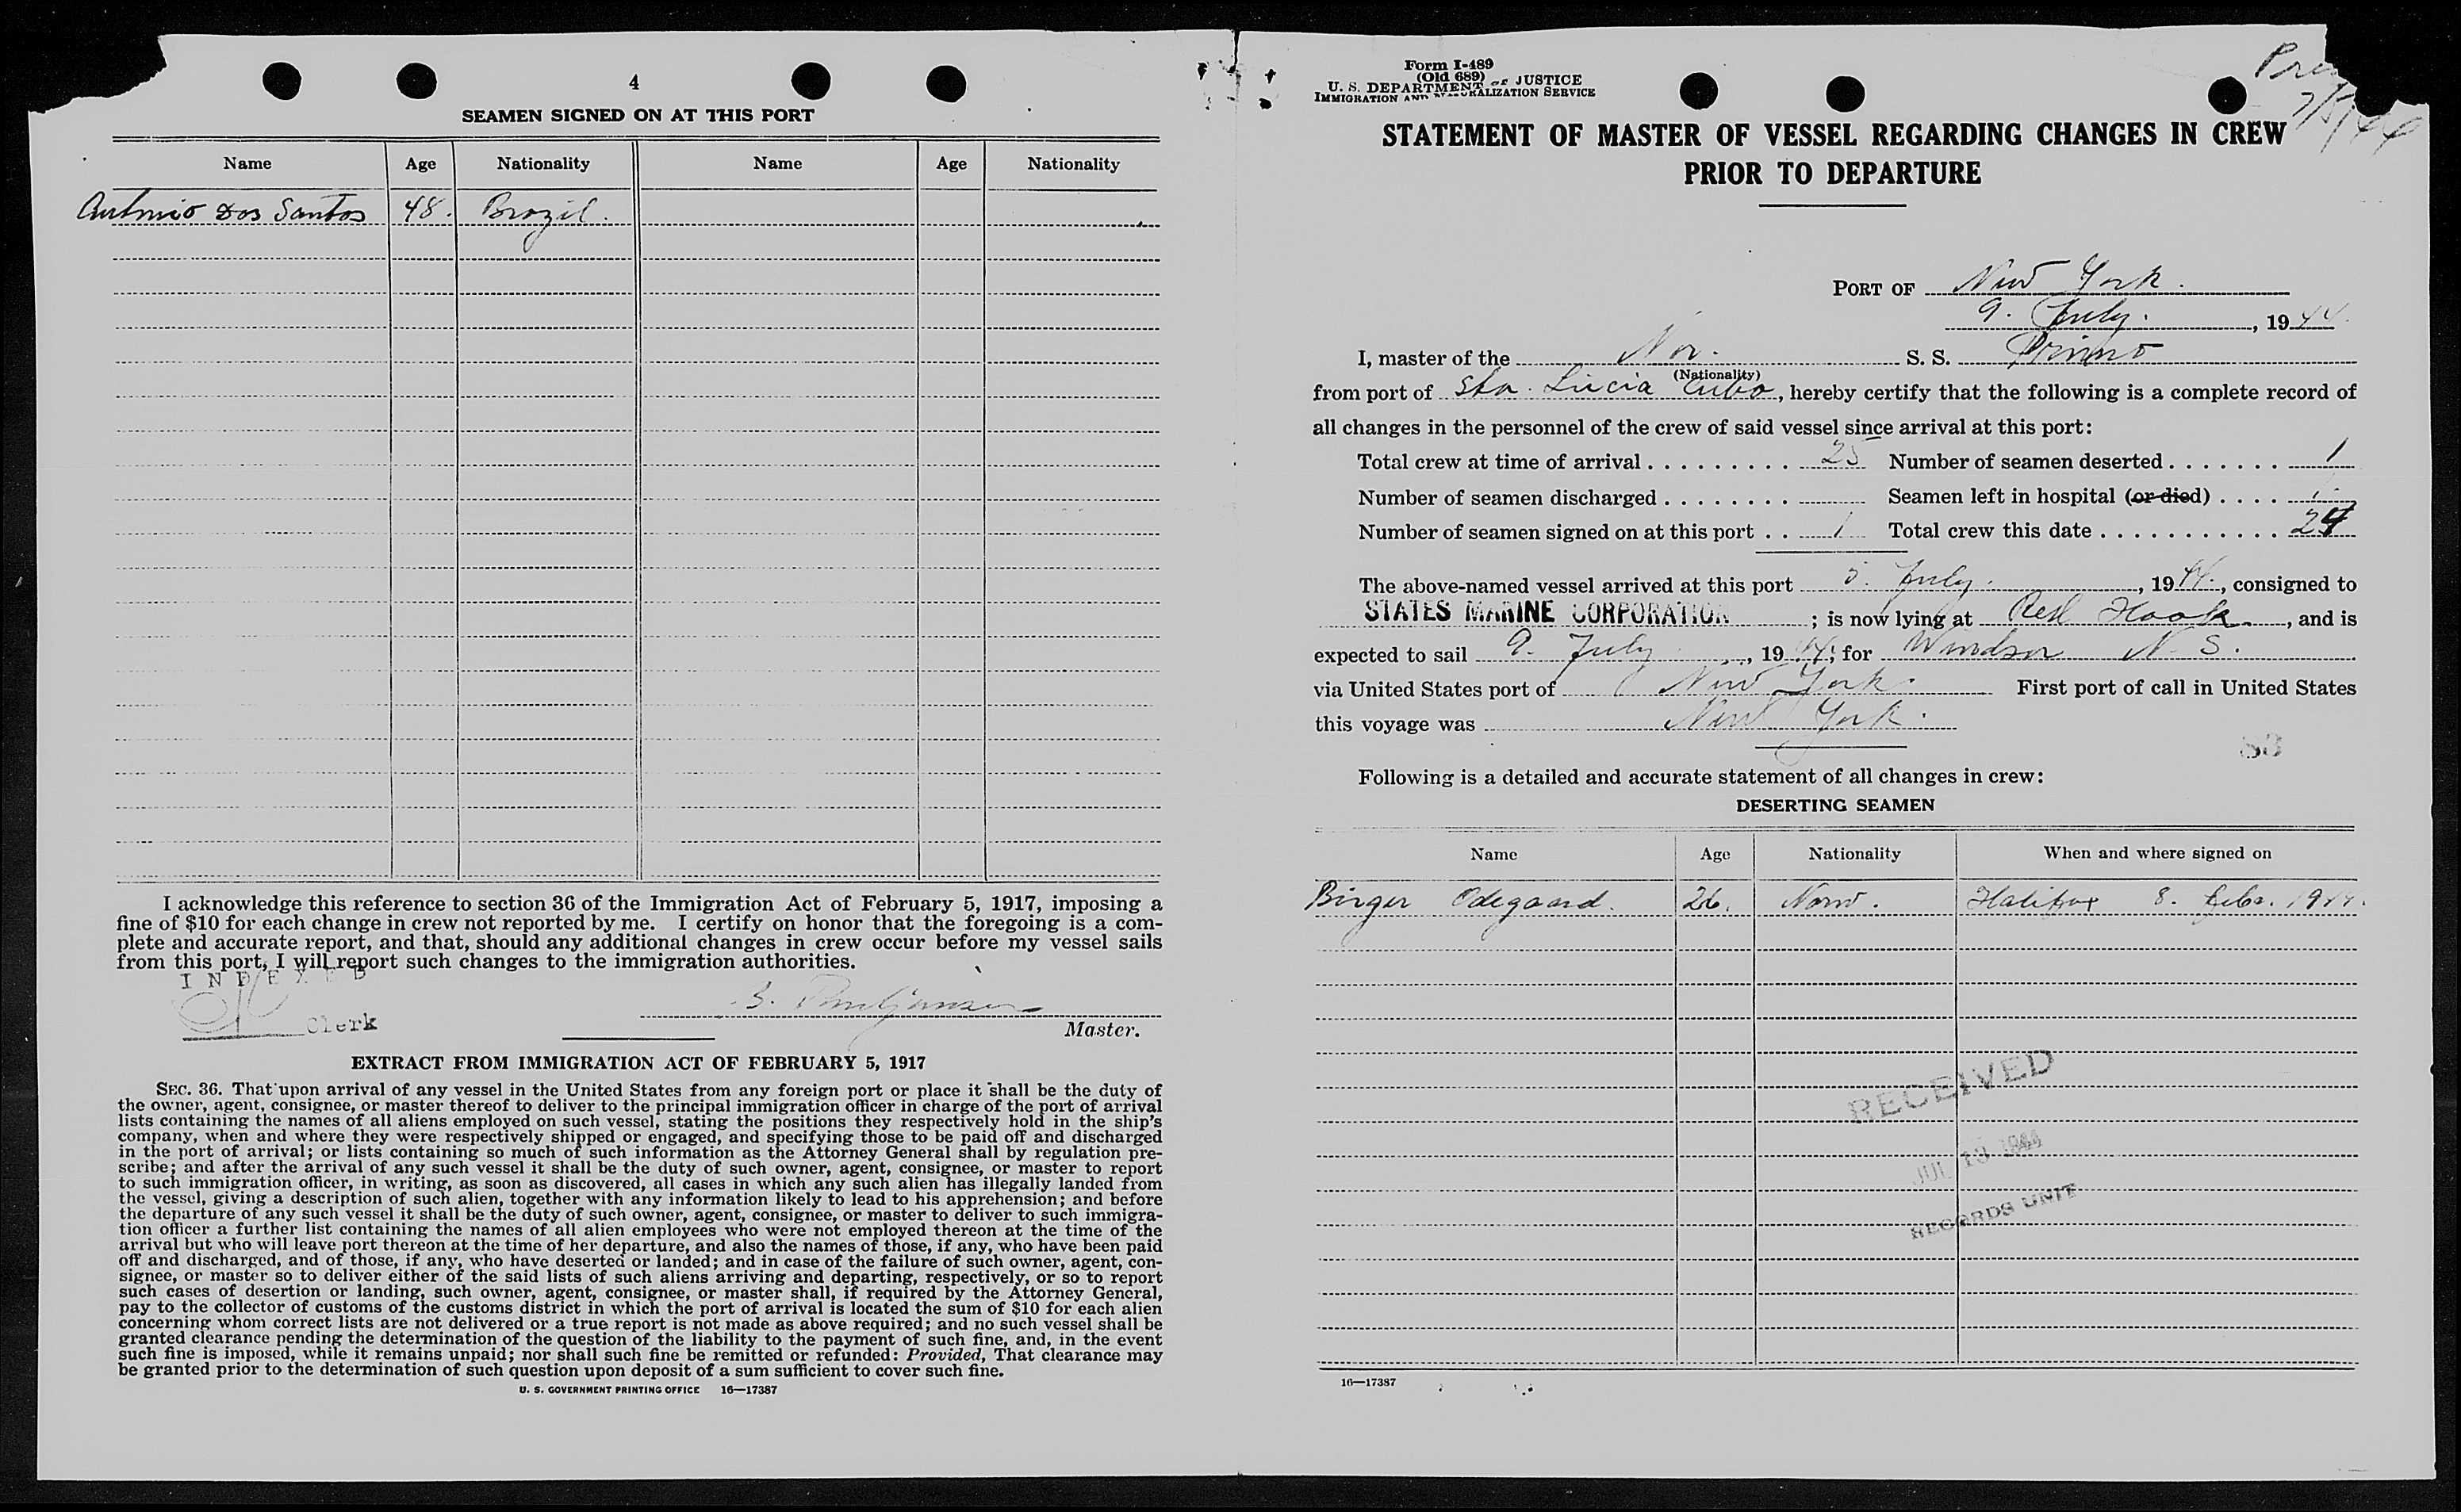 4
SEAMEN SIGNED ON AT THIS PORT
Name Age Nationality Name Age Nationality
Antonio Dos Santos 48. Brazil.
I acknowledge this reference to section 36 of the Immigration Act of February 5, 1917, imposing a
fine of $10 for each change in crew not reported by me. I certify on honor that the foregoing is a com-
plete and accurate report, and that, should any additional changes in crew occur before my vessel sails
from this port, I will report such changes to the immigration authorities.
INDEXED
Clerk
Master.
EXTRACT FROM IMMIGRATION ACT OF FEBRUARY 5, 1917
SEC. 36. That upon arrival of any vessel in the United States from any foreign port or place it shall be the duty of
the owner, agent, consignee, or master thereof to deliver to the principal immigration officer in charge of the port of arrival
lists containing the names of all aliens employed on such vessel, stating the positions they respectively hold in the ship's
company, when and where they were respectively shipped or engaged, and specifying those to be paid off and discharged
in the port of arrival; or lists containing so much of such information as the Attorney General shall by regulation pre-
scribe; and after the arrival of any such vessel it shall be the duty of such owner, agent, consignee, or master to report
to such immigration officer, in writing, as soon as discovered, all cases in which any such alien has illegally landed from
the vessel, giving a description of such alien, together with any information likely to lead to his apprehension; and before
the departure of any such vessel it shall be the duty of such owner, agent, consignee, or master to deliver to such immigra-
tion officer a further list containing the names of all alien employees who were not employed thereon at the time of the
arrival but who will leave port thereon at the time of her departure, and also the names of those, if any, who have been paid
off and discharged, and of those, if any, who have deserted or landed; and in case of the failure of such owner, agent, con-
signee, or master so to deliver either of the said lists of such aliens arriving and departing, respectively, or so to report
such cases of desertion or landing, such owner, agent, consignee, or master shall, if required by the Attorney General,
pay to the collector of customs of the customs district in which the port of arrival is located the sum of $10 for each alien
concerning whom correct lists are not delivered or a true report is not made as above required; and no such vessel shall be
granted clearance pending the determination of the question of the liability to the payment of such fine, and, in the event
such fine is imposed, while it remains unpaid; nor shall such fine be remitted or refunded: Provided, That clearance may
be granted prior to the determination of such question upon deposit of a sum sufficient to cover such fine.
U. S. GOVERNMENT PRINTING OFFICE 16—17387
Form I-489
(Old 689)
U. S. DEPARTMENT OF JUSTICE
IMMIGRATION AND NATURALIZATION SERVICE
STATEMENT OF MASTER OF VESSEL REGARDING CHANGES IN CREW
PRIOR TO DEPARTURE
PORT OF New York.
9. July., 1944
I, master of the Nor. S. S. Primo
(Nationality)
from port of Sta. Lucia Cuba, hereby certify that the following is a complete record of
all changes in the personnel of the crew of said vessel since arrival at this port:
Total crew at time of arrival . . . . . . . . . 25 Number of seamen deserted . . . . . . . 1
Number of seamen discharged . . . . . . . . Seamen left in hospital (or died) . . . . 1
Number of seamen signed on at this port . . 1 Total crew this date . . . . . . . . . . . 24
The above-named vessel arrived at this port 5. July., 1944, consigned to
STATES MARINE CORPORATION; is now lying at Red Hook, and is
expected to sail 9. July, 1944; for Windsor N. S.
via United States port of New York. First port of call in United States
this voyage was New York.
Following is a detailed and accurate statement of all changes in crew:
DESERTING SEAMEN
Name Age Nationality When and where signed on
Birger Odegaard. 26. Norw. Halifax 8. Febr. 1944.
RECEIVED
JUL 13 1944
RECORDS UNIT
16—17387